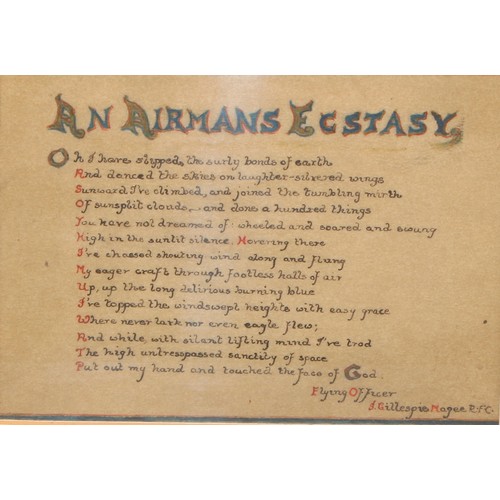 AN AIRMANS ECSTASY,
Oh I have slipped, the surly bonds of earth
And danced the skies on laughter-silvered wings
Sunward I've climbed, and joined the tumbling mirth
Of sunsplit clouds,- and done a hundred things
You have not dreamed of: wheeled and soared and swung
High in the sunlit silence. Hovering there
I've chassed shouting wind along and flung
My eager craft through footless halls of air
Up, up the long delirious burning blue
I've topped the windswept heights with easy grace
Where never lark nor even eagle flew;
And while, with silent lifting mind I've trod
The high untresspassed sanctity of space
Put out my hand and touched the face of God.
Flying Officer
J. Gillespie Magee R.F.C.